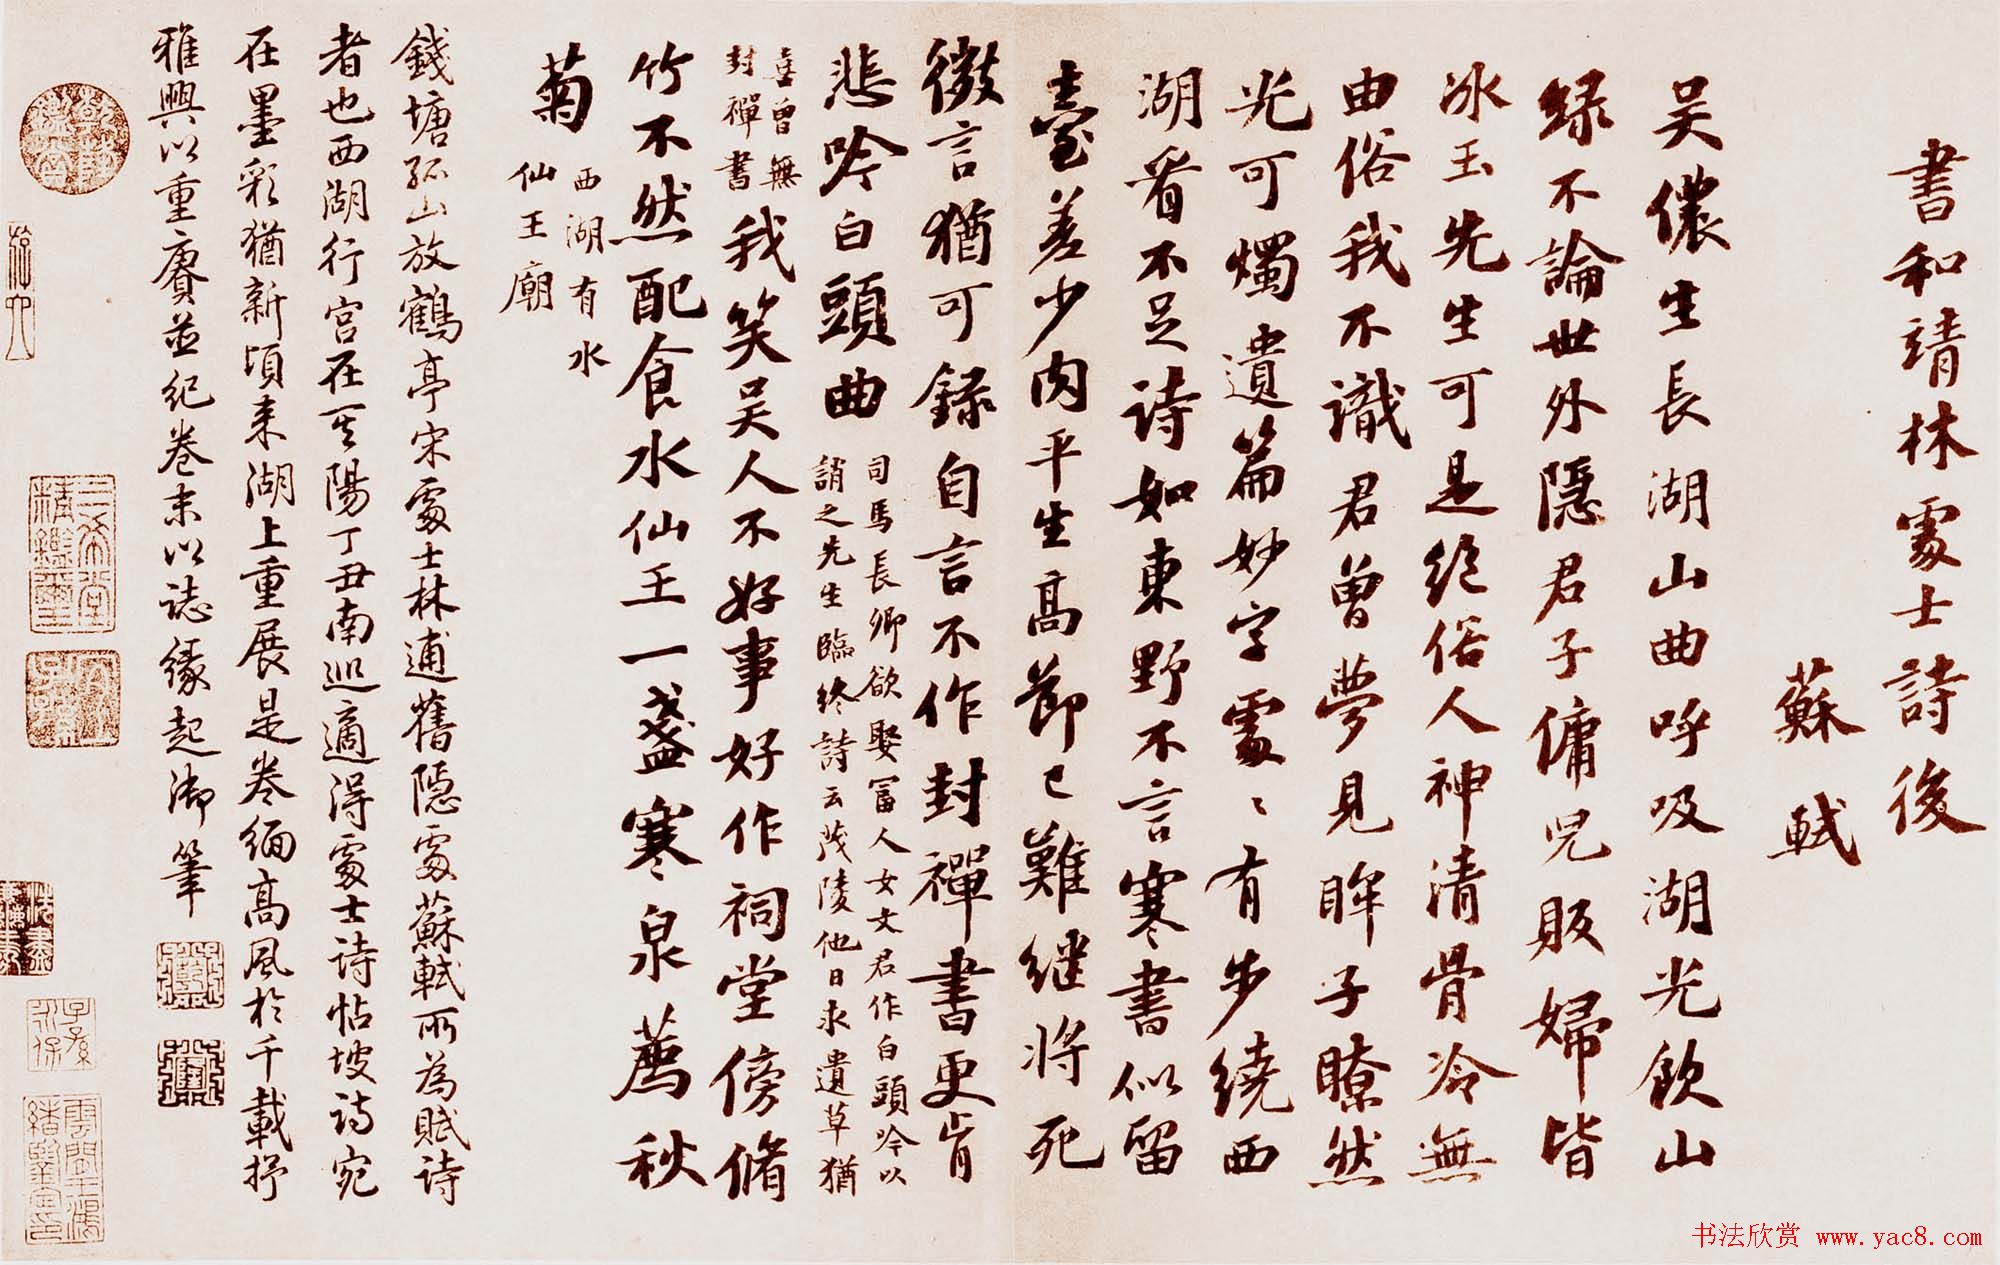 書和靖林處士詩後
蘇軾
吴儂生長湖山曲呼吸湖光飲山
緑不論世外隱君子傭兒販婦皆
冰玉先生可是絕俗人神清骨冷無
由俗我不識君曾夢見眸子瞭然
光可燭遺篇妙字處〻有步繞西
湖看不足詩如東野不言寒書似留
臺差少肉平生高節已難繼將死
微言猶可錄自言不作封禪書更肯
悲吟白頭曲
司馬長卿欲娶富人女文君作白頭吟以
誚之先生臨終詩云茂陵他日求遺草猶
喜曾無
封禪書
我笑吴人不好事好作祠堂傍脩
竹不然配食水仙王一盞寒泉薦秋
菊
西湖有水
仙王廟
錢塘孤山放鶴亭宋處士林逋舊隱處蘇軾所為賦詩
者也西湖行宮在其陽丁丑南巡適得處士詩帖坡詩宛
在墨彩猶新頃来湖上重展是卷緬高風於千載抒
雅興以重賡並紀卷末以誌緣起御筆
三希堂
精鑑璽
宜子孫
乾隆
鑒賞
子孫
永保
书法欣赏 www.yac8.com